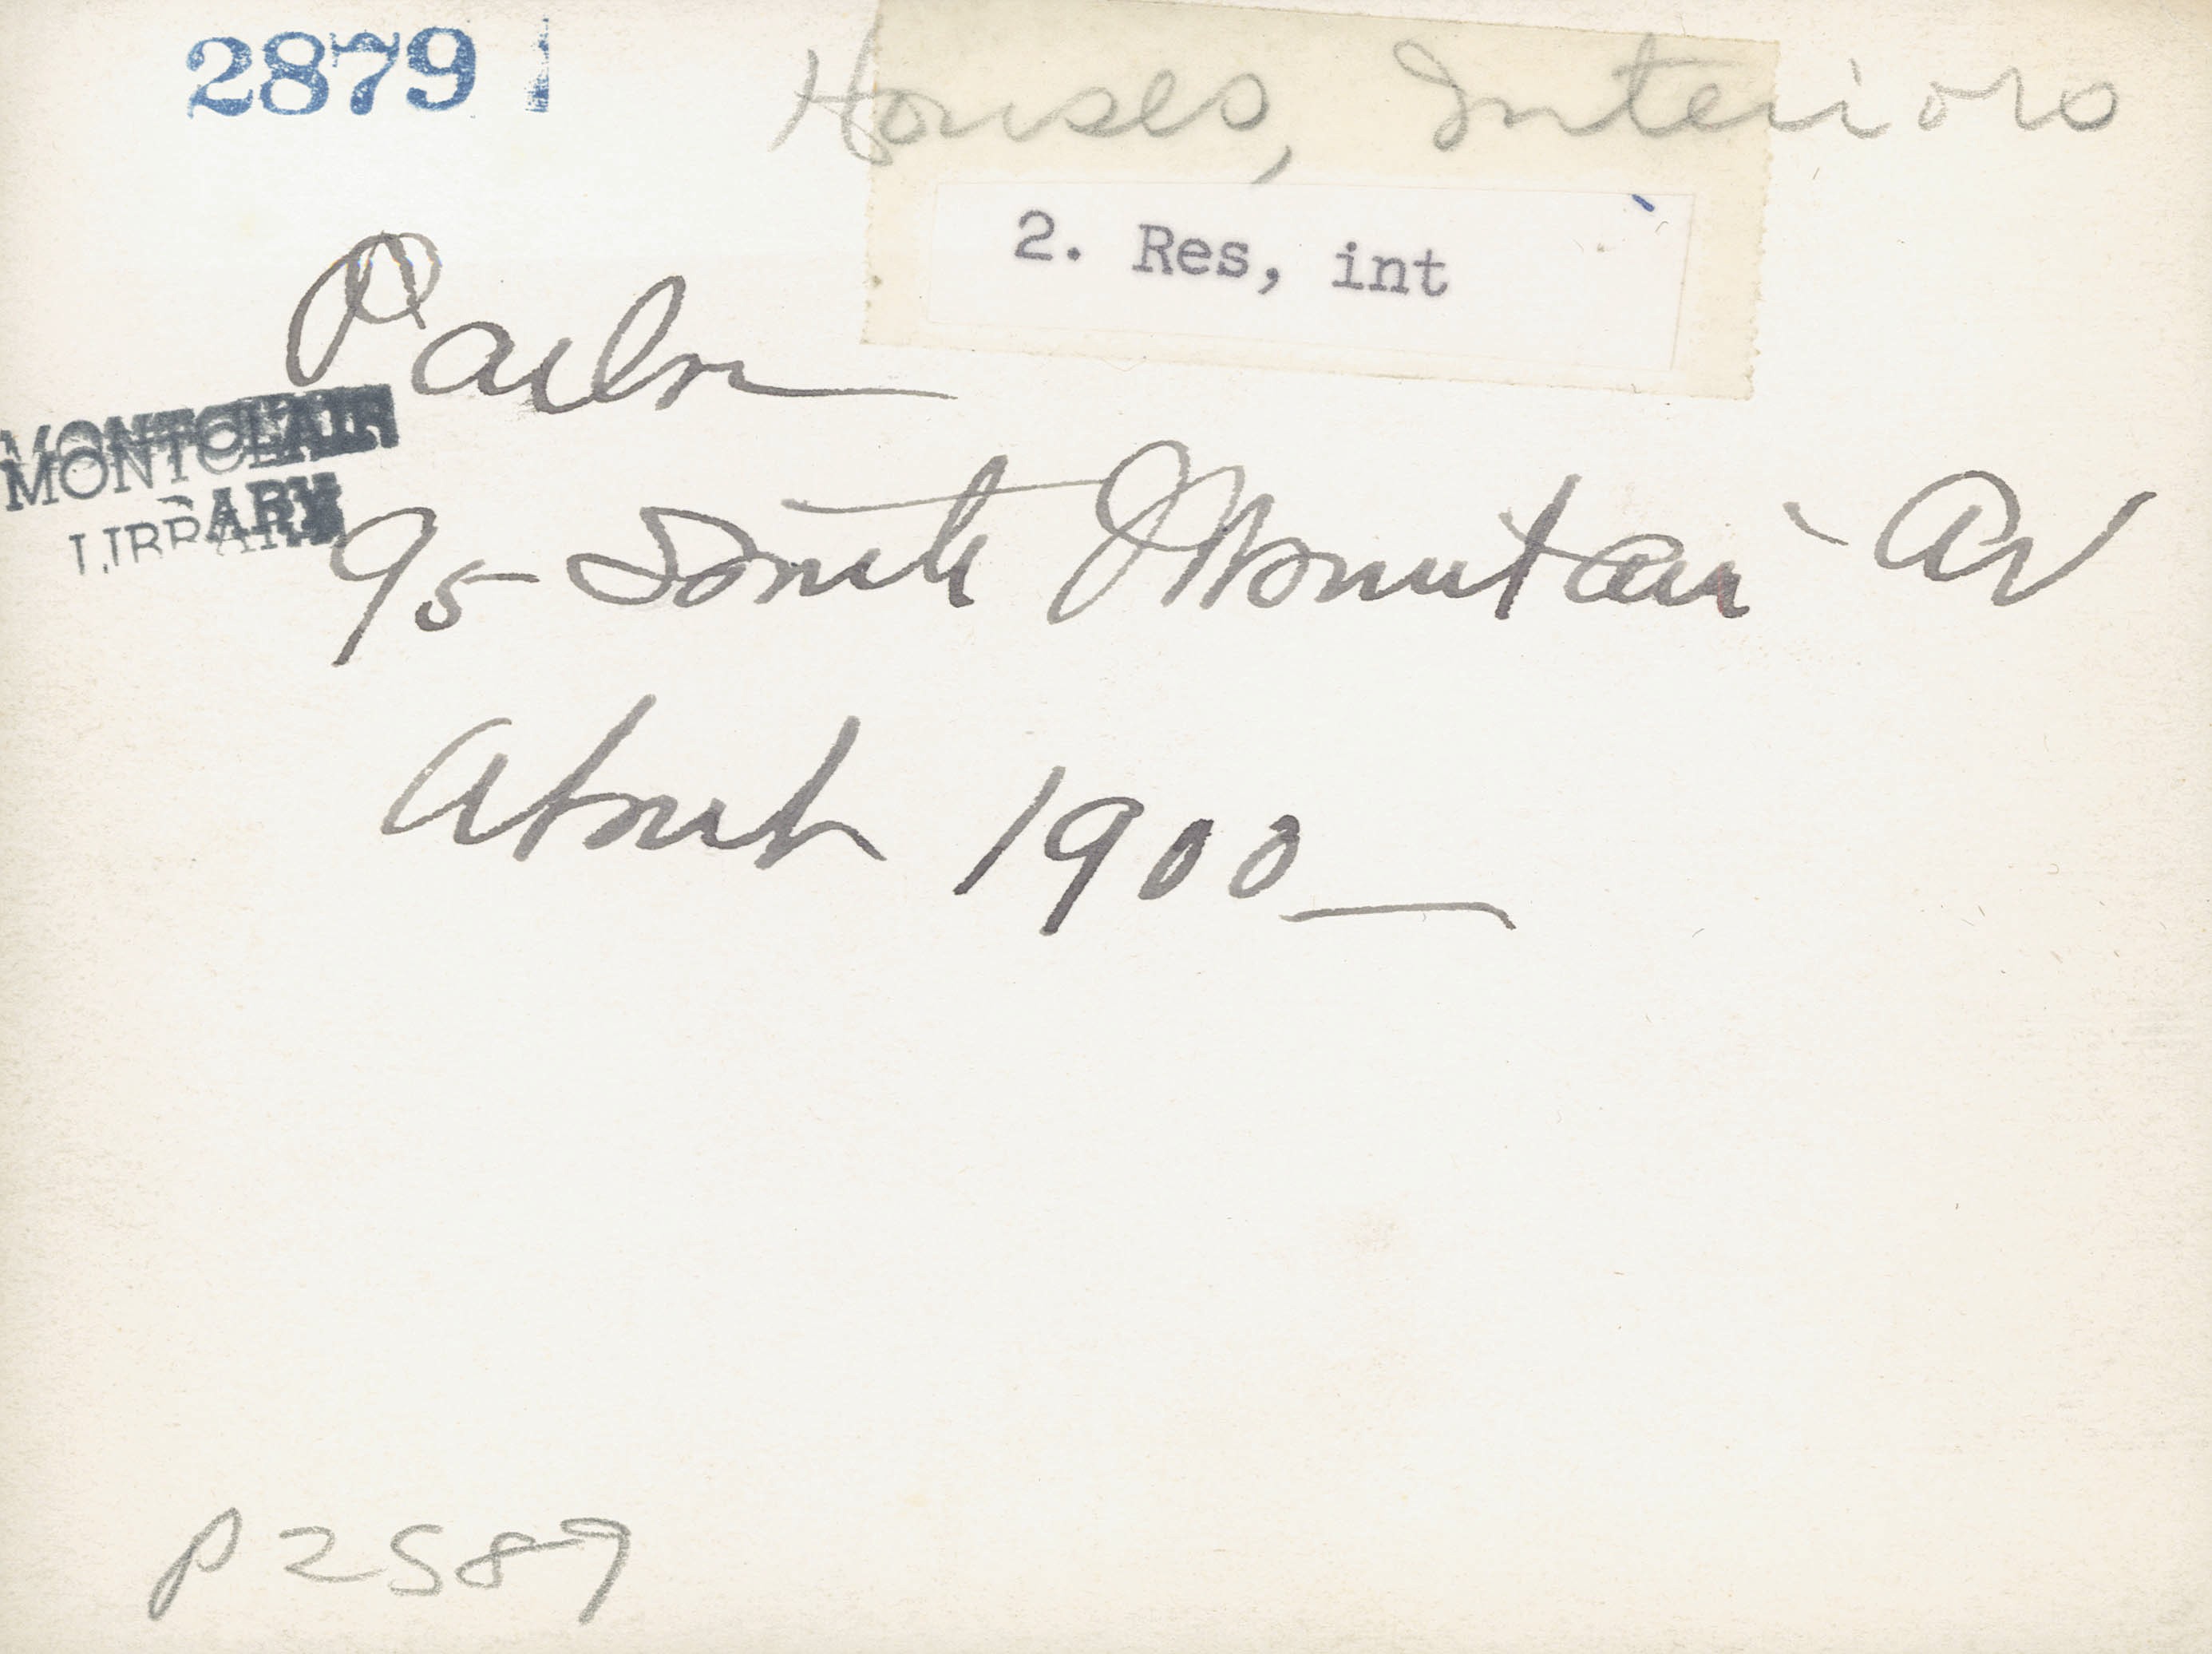 2879
Houses, Interiors
2. Res, int
Parlor
MONTCLAIR
LIBRARY
95 South Mountain Av
About 1900
P2589